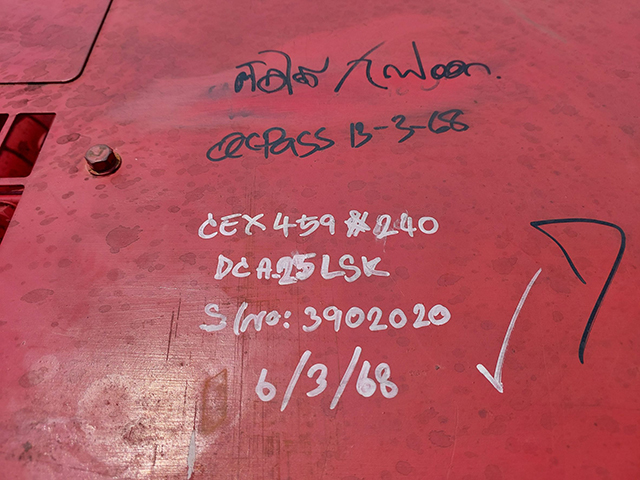 ติดได้ / ไฟออก.
QC Pass 13-3-68
CEX 459 # 240
DCA25LSK
S/no: 3902020
6/3/68